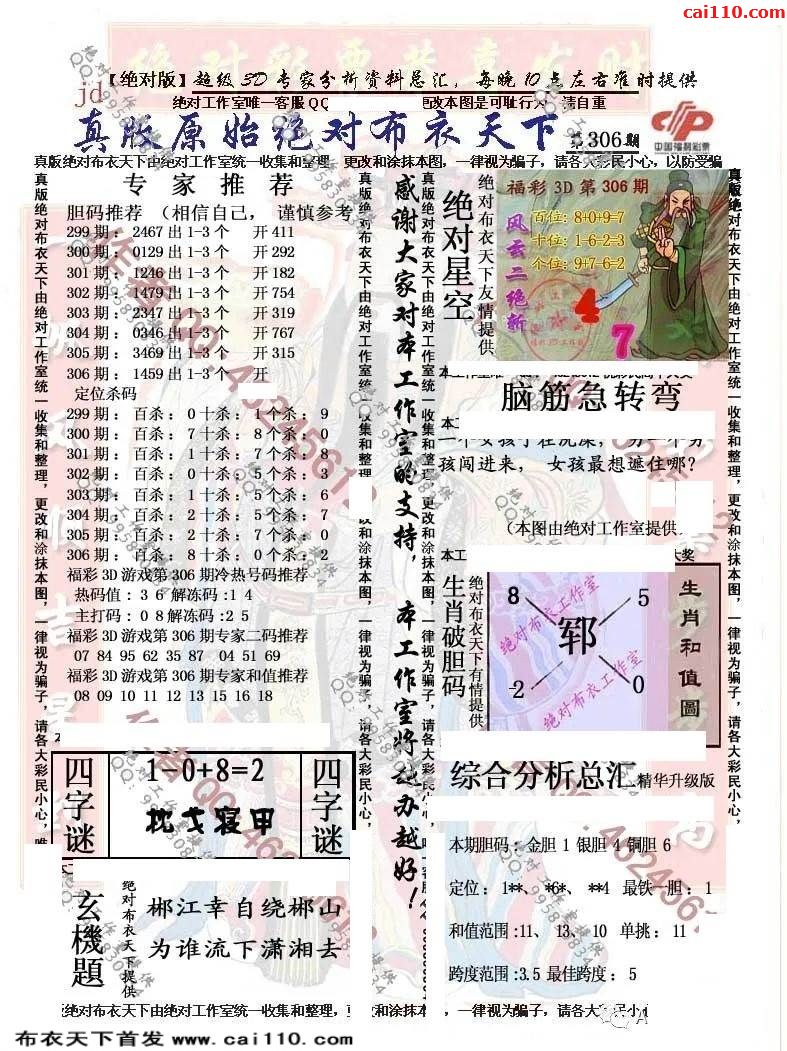 cai110.com
【绝对版】超级3D专家分析资料总汇，每晚10点左右准时提供
jd
绝对工作室唯一客服QQ 更改本图是可耻行为 请自重
真版原始绝对布衣天下 第306期
中国福利彩票
真版绝对布衣天下由绝对工作室统一收集和整理，更改和涂抹本图，一律视为骗子，请各大彩民小心，以防受骗
真版绝对布衣天下由绝对工作室统一收集和整理，更改和涂抹本图，一律视为骗子，请各大彩民小心，唯
专家推荐
胆码推荐 （相信自己， 谨慎参考
299期： 2467出1-3个 开411
300期： 0129出1-3个 开292
301期： 1246出1-3个 开182
302期： 1479出1-3个 开754
303期： 2347出1-3个 开319
304期： 0346出1-3个 开767
305期： 3469出1-3个 开315
306期： 1459出1-3个 开
定位杀码
299期： 百杀：0十杀：1个杀：9
300期： 百杀：7十杀：8个杀：0
301期： 百杀：1十杀：7个杀：8
302期： 百杀：0十杀：5个杀：3
303期： 百杀：1十杀：5个杀：6
304期： 百杀：2十杀：5个杀：7
305期： 百杀：2十杀：7个杀：0
306期： 百杀：8十杀：0个杀：2
福彩3D游戏第306期冷热号码推荐
热码值：3 6解冻码:1 4
主打码：0 8解冻码:2 5
福彩3D游戏第306期专家二码推荐
07 84 95 62 35 87 04 51 69
福彩3D游戏第306期专家和值推荐
08 09 10 11 12 13 15 16 18
四字谜
1-0+8=2
枕戈寝甲
四字谜
玄機題
绝对布衣天下提供
郴江幸自绕郴山
为谁流下潇湘去
感谢大家对本工作室的支持，本工作室将越办越好！
绝对星空
绝对布衣天下友情提供
福彩3D第306期
风云二绝斩
百位：8+0+9=7
十位：1-6-2=3
个位：9+7-6=2
4
7
脑筋急转弯
孩闯进来， 女孩最想遮住哪？
（本图由绝对工作室提供
生肖破胆码
绝对布衣天下有情提供
8
5
郓
2
0
绝对布衣工作室
绝对布衣工作室
生肖和值圖
综合分析总汇精华升级版
本期胆码：金胆 1 银胆 4 铜胆 6
定位：1**、 *6*、 **4 最铁一胆：1
和值范围:11、 13、 10 单挑： 11
跨度范围:3.5 最佳跨度： 5
绝对布衣天下由绝对工作室统一收集和整理，更改和涂抹本图，一律视为骗子，请各大彩民小心
布衣天下首发 www.cai110.com